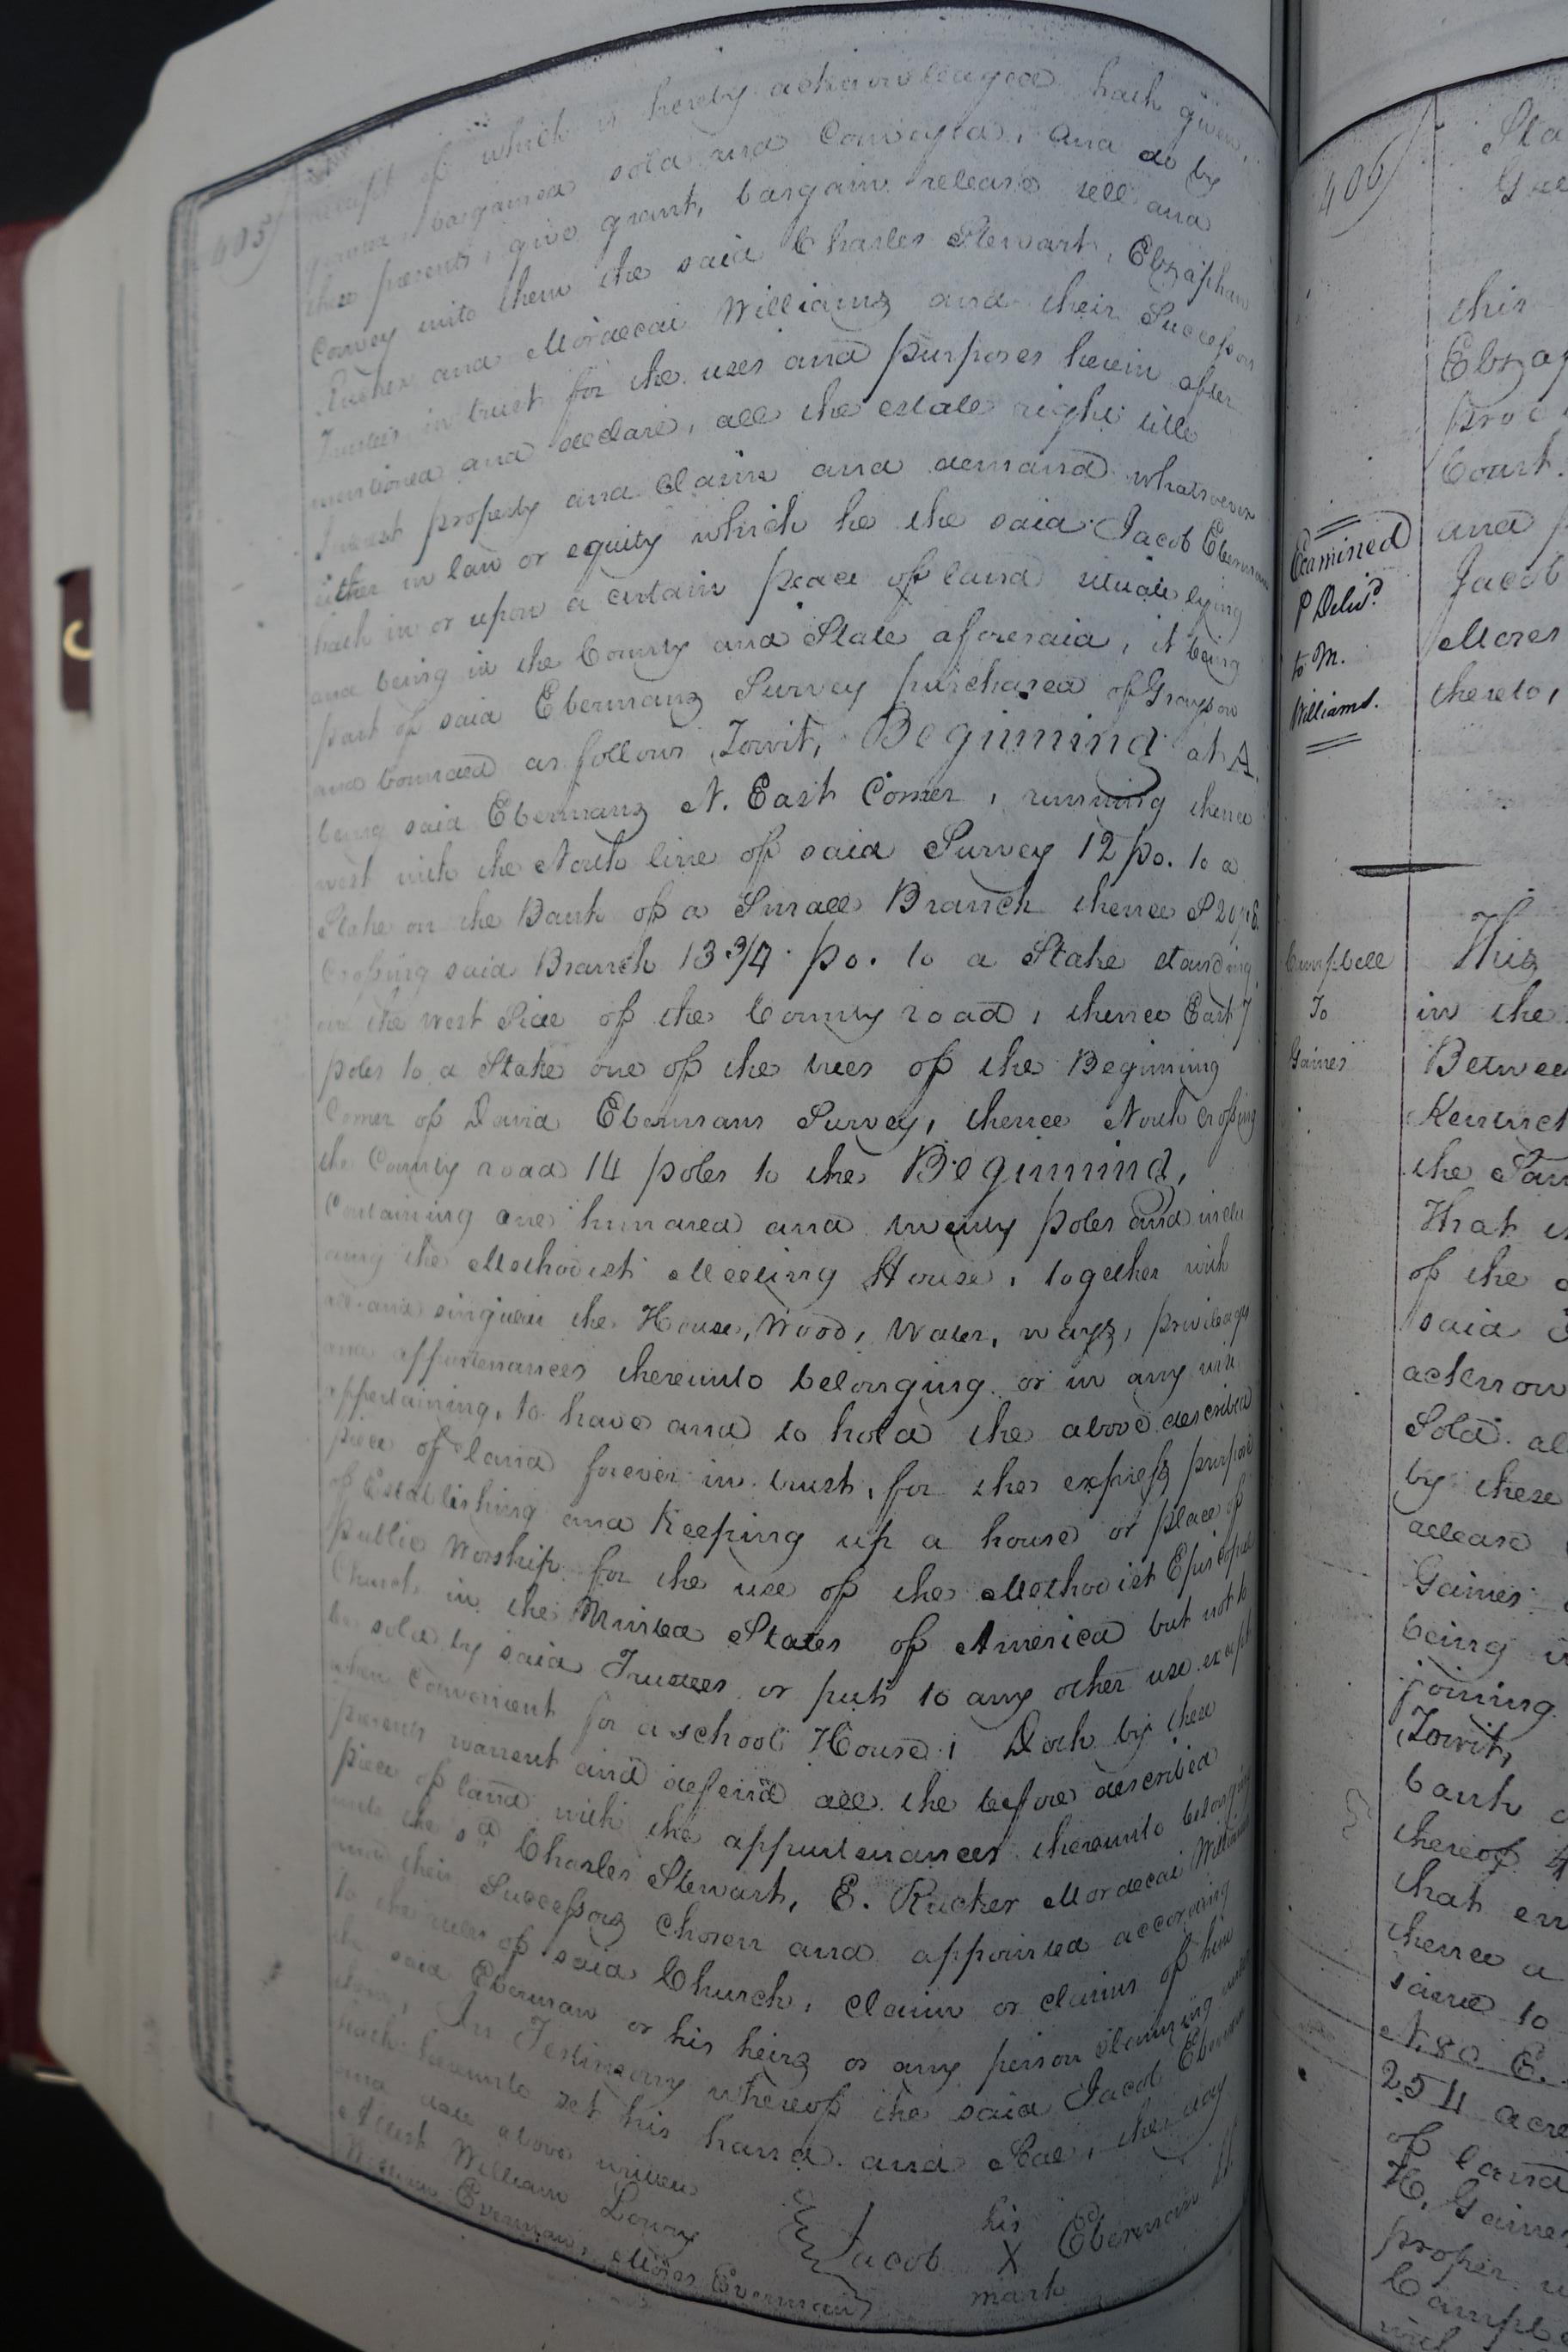 405
receipt of which is hereby acknowledged hath given,
granted, bargained sold and Conveyed, and do by
these presents, give grant, bargain release sell and
Convey unto them the said Charles Stewart, Elzaphan
Rucker and Mordecai Williams and their Successors
Trustees in trust for the uses and purposes herein after
mentioned and declare, all the estate right title
Interest property and Claim and demand whatsoever
either in law or equity which he the said Jacob Eberman
hath in or upon a certain peace of land situate lying
and being in the County and State aforesaid, it being
part of said Ebermans Survey purchased of Grayson
and bounded as follows Towit, Beginning at A.
being said Ebermans N. East Corner, running thence
west with the North line of said Survey 12 po. to a
Stake on the Bank of a Small Branch thence S 20 E.
Crossing said Branch 13 3/4 po. to a Stake standing
on the west Side of the County road, thence East 7
poles to a Stake one of the trees of the Beginning
Corner of David Ebermans Survey, thence North crossing
the County road 14 poles to the Beginning,
Containing one hundred and twenty poles and inclu
ding the Methodist Meeting House, together with
all and singular the House, Wood, Water, ways, privileages
and appurtenances thereunto belonging or in any wise
appertaining, to have and to hold the above described
piece of land forever in trust, for the express purpose
of Establishing and Keeping up a house or place of
public Worship for the use of the Methodist Episcopal
Church in the United States of America but not to
be sold by said Trustees or put to any other use except
when Convenient for a school House; Doth by these
presents warrent and defend all the before described
piece of land with the appurtenances thereunto belonging
unto the sd Charles Stewart, E. Rucker Mordecai Williams
and their Successors chosen and appointed according
to the rules of said Church, claim or claims of him
the said Eberman or his heirs or any person claiming under
them, In Testimony whereof the said Jacob Eberman
hath hereunto set his hand and Seal, the day
and date above written
Attest William Lowry
his
Jacob X Eberman
mark
Everman, Moses Everman
406
Sta
this
Elzap
Court.
Examined
& Delivd
to M.
Williams.
and
Jacob
Moses
thereto,
Campbell
To
Gaines
This
in the
Betwee
Kentuck
the
That
of the
said
acknow
Sold. al
by these
release
Gaines
being
joining
Towit,
bank
thereof
that
thence a
same to
N. 80 E.
254 acre
of land
H. Gaines
proper
Campb
with